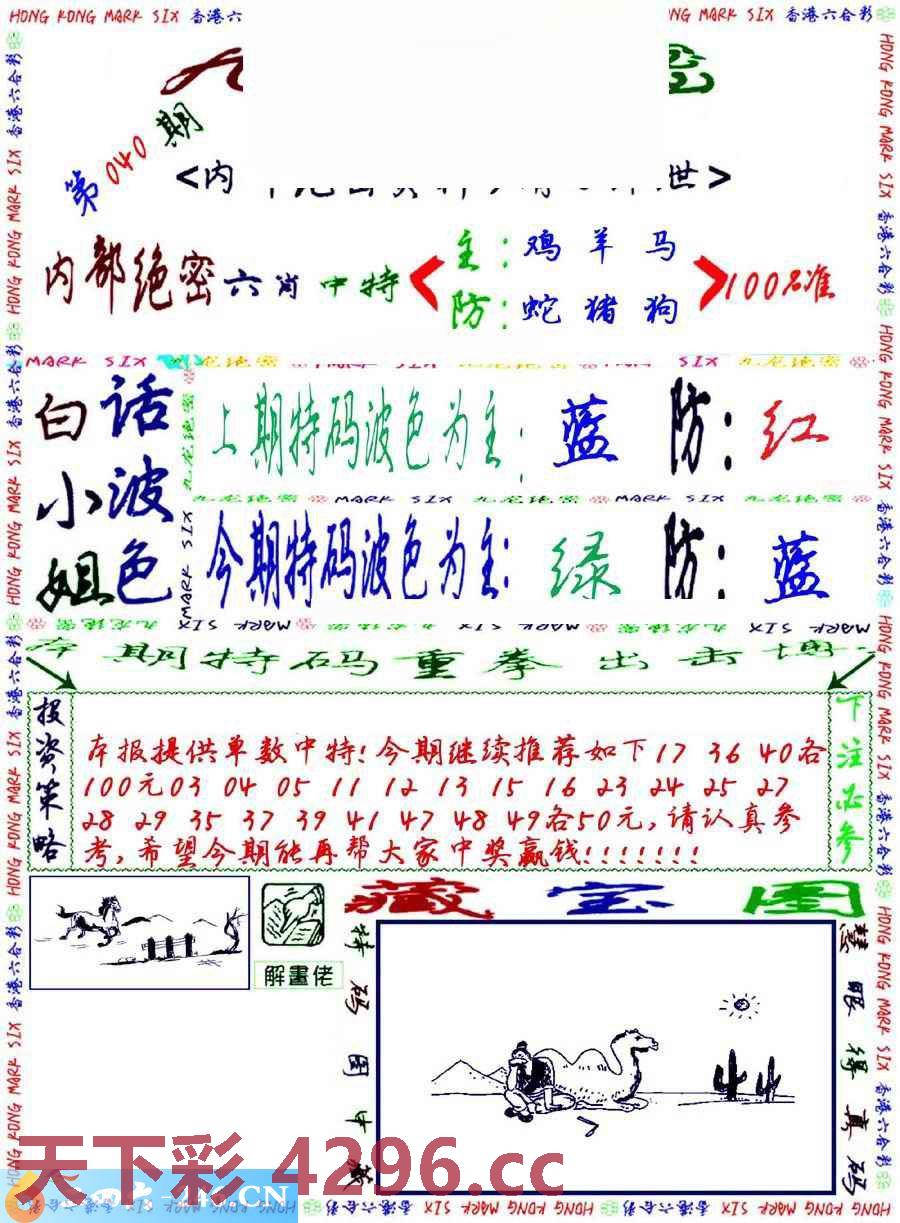 HONG KONG MARK SIX 香港六
NG MARK SIX 香港六合彩
第040期
<内
世>
内部绝密六肖中特
主:鸡羊马
防:蛇猪狗
100%准
MARK SIX 九龙绝密
白小姐
话波色
上期特码波色为主:蓝 防:红
九龙绝密 MARK SIX 九龙绝密 MARK SIX 九龙绝密
今期特码波色为主:绿 防:蓝
期特码重拳出击
投资策略
本报提供单数中特!今期继续推荐如下17 36 40各
100元03 04 05 11 12 13 15 16 23 24 25 27
28 29 35 37 39 41 47 48 49各50元,请认真参
考,希望今期能再帮大家中奖赢钱!!!!!!!
下注必参
解畫佬
藏宝图
特码图中藏
慧眼得真码
天下彩 4296.cc